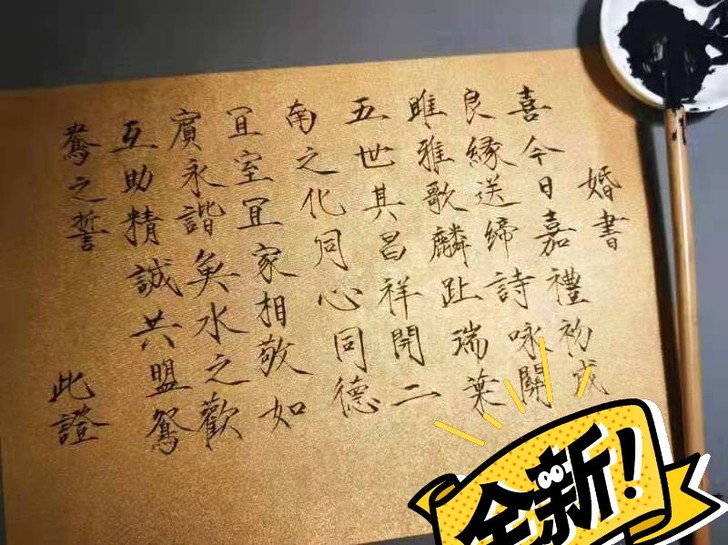 婚書
喜今日嘉禮初成
良縁送締詩咏關
雎雅歌麟趾瑞葉
五世其昌祥開二
南之化同心同德
冝室冝家相敬如
賓永諧魚水之歡
互助精誠共盟鴛
鴦之誓 此證
全新!